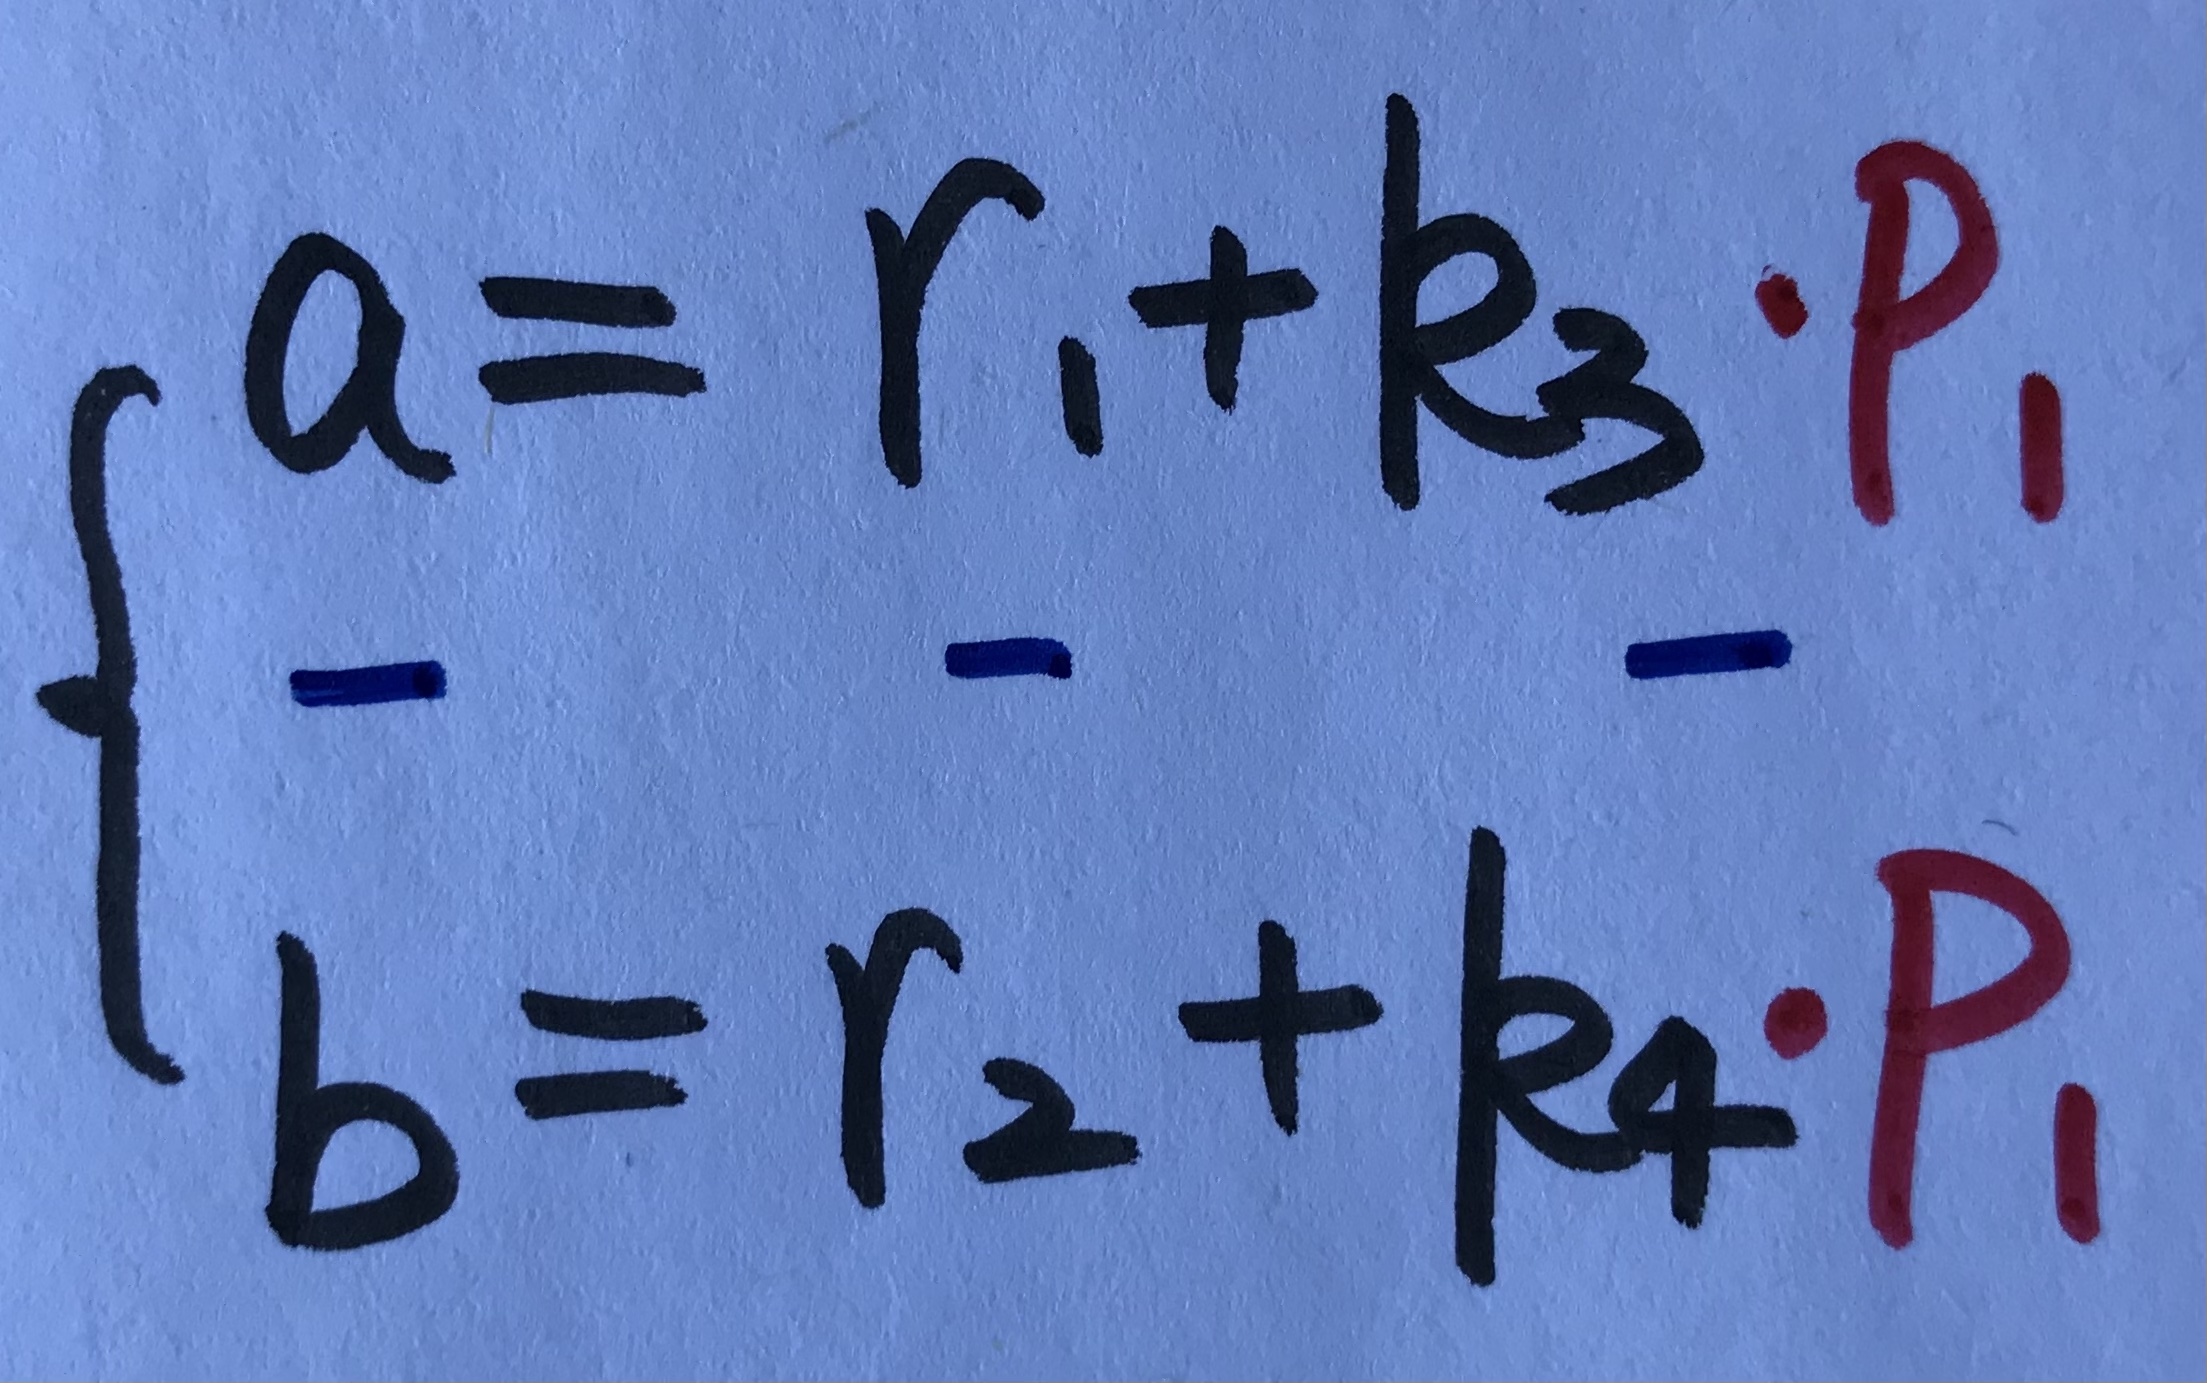 a = r₁ + k₃ · P₁
— — —
b = r₂ + k₄ · P₁